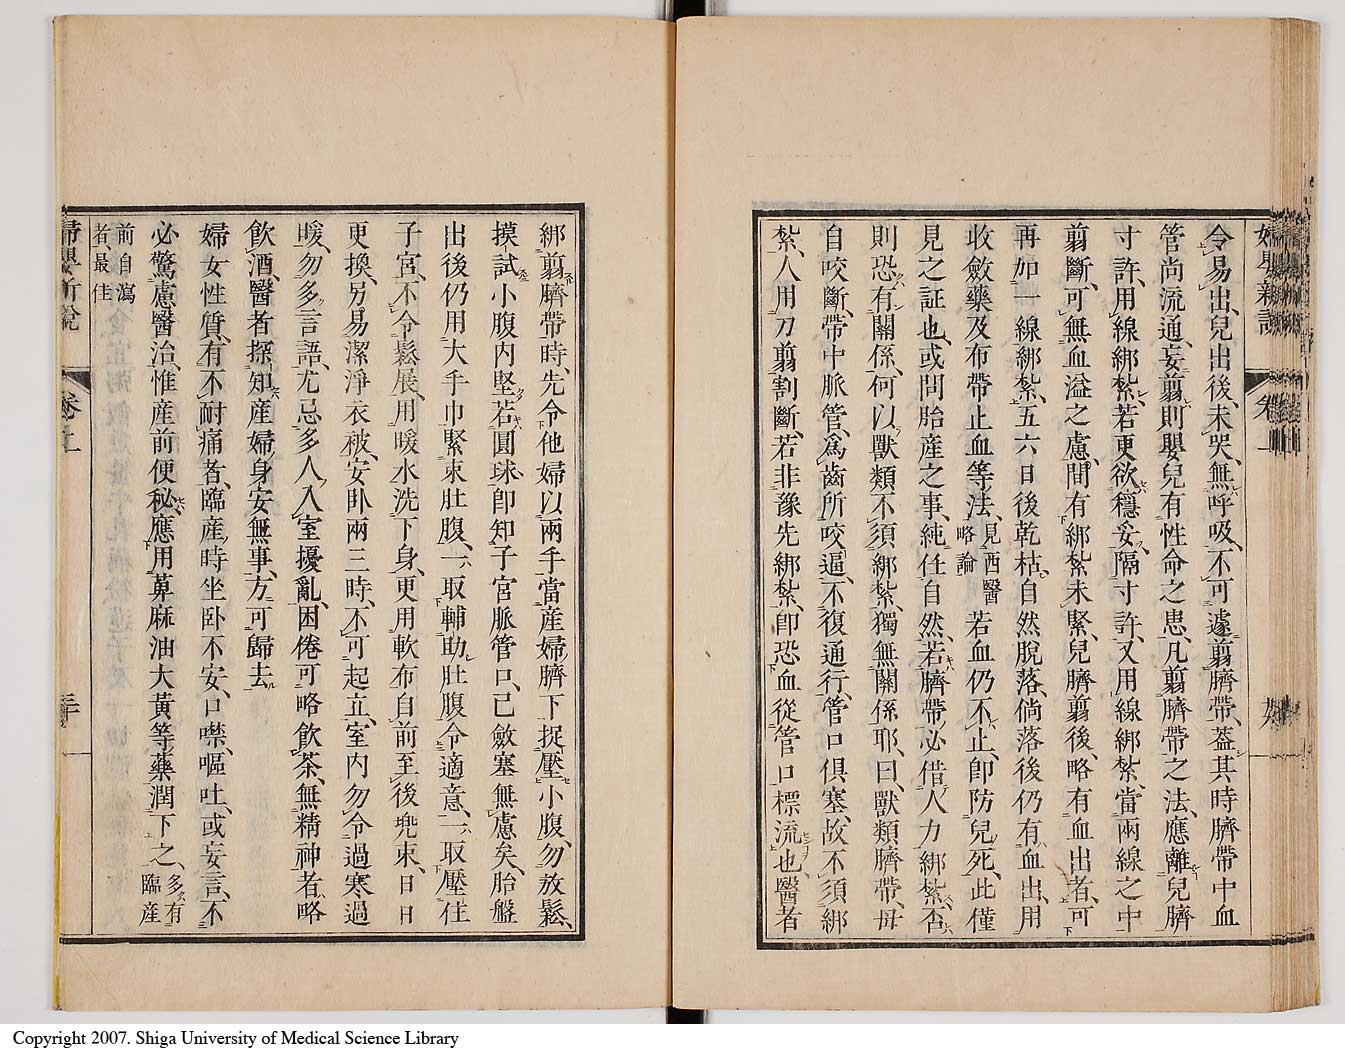 令易出、兒出後、未哭、無呼吸、不可遽翦臍帶、葢其時臍帶中血
管尚流通、妄翦則嬰兒有性命之患、凡翦臍帶之法、應離兒臍
寸許、用線綁紮、若更欲穩妥、隔寸許、又用線綁紮、當兩線之中
翦斷、可無血溢之慮、間有綁紮未緊、兒臍翦後、略有血出者、可
再加一線綁紮、五六日後乾枯、自然脫落、倘落後仍有血出、用
收斂藥及布帶止血等法、見西醫略論若血仍不止、卽防兒死、此僅
見之証也、或問胎產之事、純任自然、若臍帶必借人力綁紮、否
則恐有關係、何以獸類不須綁紮、獨無關係耶、曰、獸類臍帶、母
自咬斷、帶中脈管、爲齒所咬逼、不復通行、管口俱塞、故不須綁
紮、人用刀翦割斷、若非豫先綁紮、卽恐血從管口標流也、醫者
綁翦臍帶時、先令他婦以兩手當產婦臍下捉壓小腹、勿放鬆、
摸試小腹內堅若圓球、卽知子宮脈管口、已斂塞無慮矣、胎盤
出後仍用大手巾緊束肚腹、一取輔助肚腹令適意、一取壓住
子宮、不令鬆展、用暖水洗下身、更用軟布自前至後兜束、日日
更換、另易潔淨衣被、安臥兩三時、不可起立、室內勿令過寒過
暖、勿多言語、尤忌多人入室擾亂、困倦可略飲茶、無精神者、略
飲酒、醫者探知產婦身安無事、方可歸去
婦女性質、有不耐痛者、臨產時坐臥不安、口噤、嘔吐、或妄言、不
必驚慮醫治、惟產前便秘、應用萆麻油大黃等藥潤下之、多有臨產
前自瀉者、最佳
婦嬰新說
卷上
三十
Copyright 2007. Shiga University of Medical Science Library